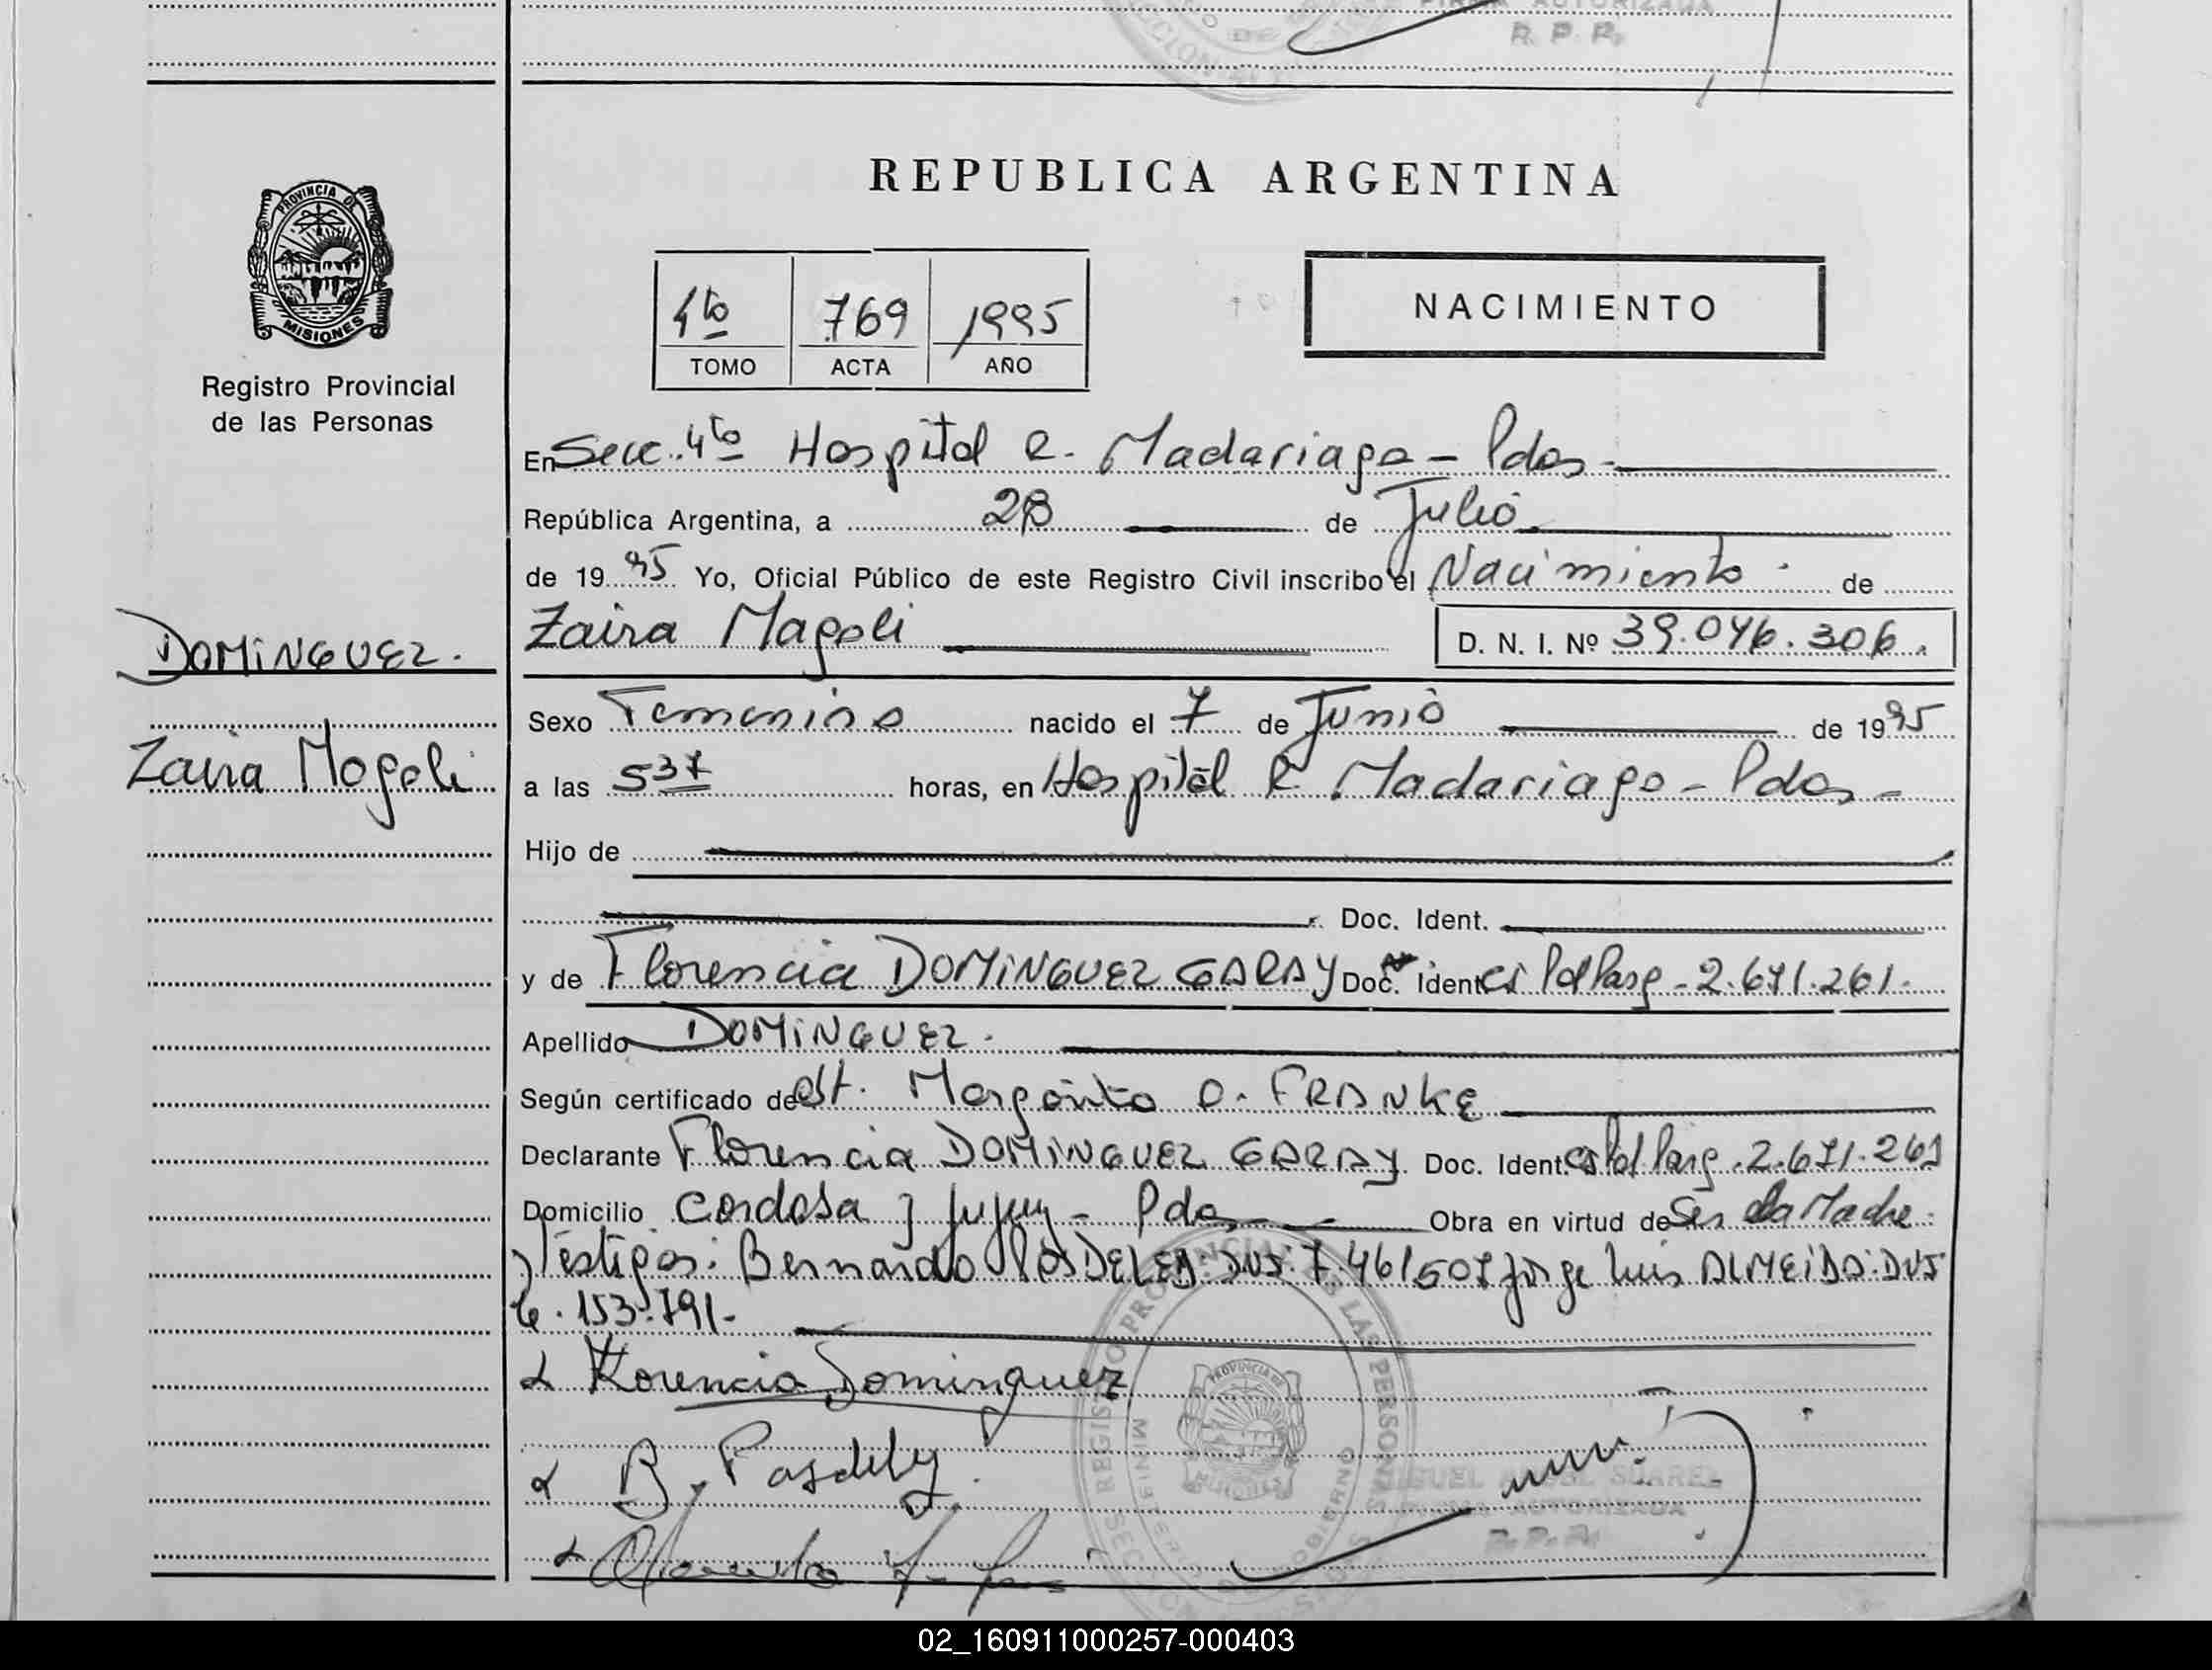 FIRMA AUTORIZADA
R. P. P.
REPUBLICA ARGENTINA
PROVINCIA DE
MISIONES
Registro Provincial
de las Personas
4to 769 1995
TOMO ACTA AÑO
NACIMIENTO
En Secc. 4to Hospital R. Madariaga - Pdas -
República Argentina, a 28 de Julio
de 1995 Yo, Oficial Público de este Registro Civil inscribo el Nacimiento de
Zaira Magali D. N. I. Nº 39.046.306.
DOMINGUEZ.
Zaira Magali
Sexo Femenino nacido el 7 de Junio de 1995
a las 537 horas, en Hospital R Madariaga - Pdas -
Hijo de
Doc. Ident.
y de Florencia DOMINGUEZ GARAY Doc. Ident. 2.671.261.
Apellido DOMINGUEZ.
Según certificado de Obst. Margarita O. FRANKE
Declarante Florencia DOMINGUEZ GARAY Doc. Ident. 2.671.261
Domicilio Cordoba y Jujuy - Pdas Obra en virtud de Ser la Madre.
Testigos: Bernardo 7.461.507 Jorge Luis ALMEIDA: DNI:
153.791-
Florencia Dominguez
B.
MIGUEL ANGEL SUAREZ
FIRMA AUTORIZADA
R. P. P.
REGISTRO PROVINCIAL DE LAS PERSONAS
02_160911000257-000403